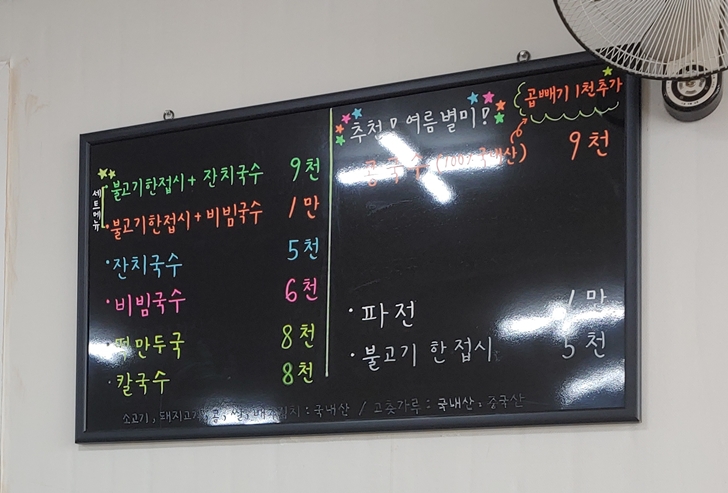 세트메뉴
불고기한접시 + 잔치국수 9천
· 불고기한접시 + 비빔국수 1만
· 잔치국수 5천
· 비빔국수 6천
· 떡만두국 8천
· 칼국수 8천
추천! 여름별미!
곱빼기 1천추가
콩국수 (100% 국내산) 9천
· 파전 1만
· 불고기 한접시 5천
소고기, 돼지고기, 콩, 쌀, 배추김치 : 국내산 / 고춧가루 : 국내산, 중국산